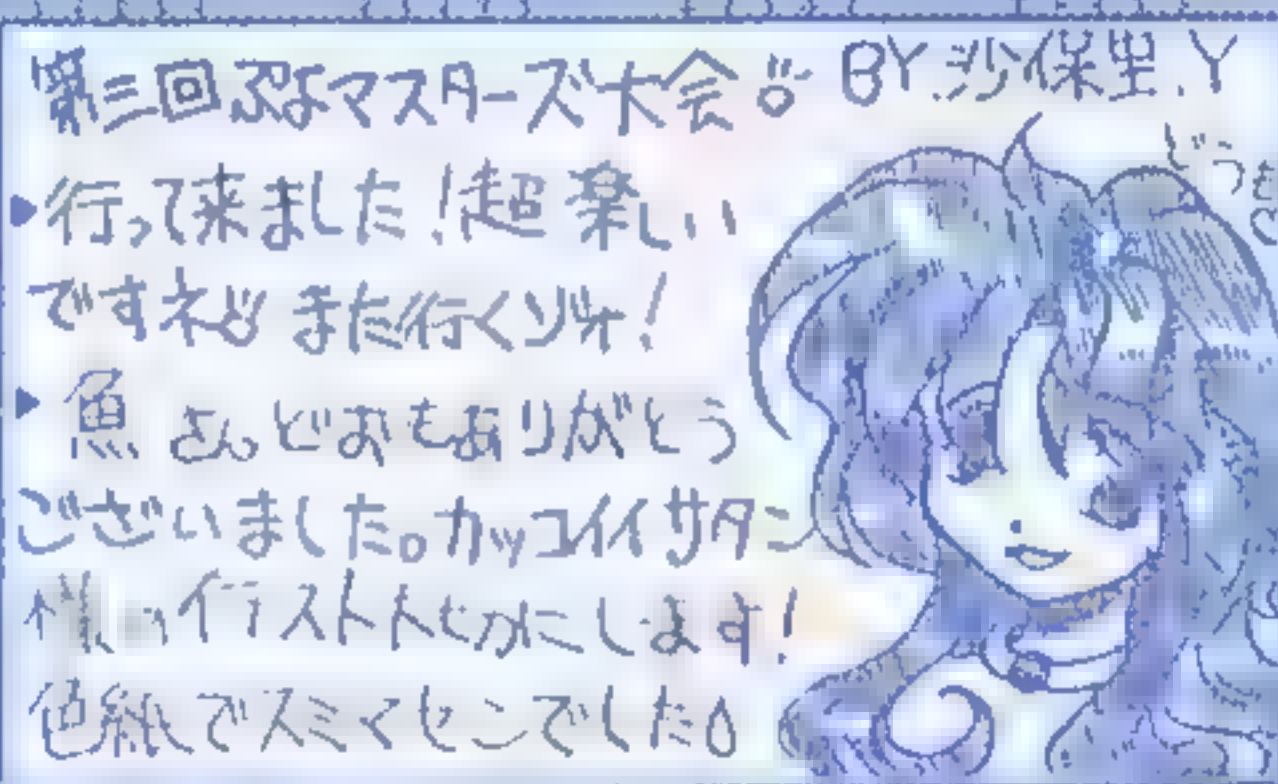 第三回ぷよマスターズ大会 BY.沙保里.Y
行って来ました!超楽しい
ですネ また行くゾオ!
魚さんどおもありがとう
ございました。カッコイイサタン
様の イラスト 大じにします!
色紙でスミマセンでした。
どうも